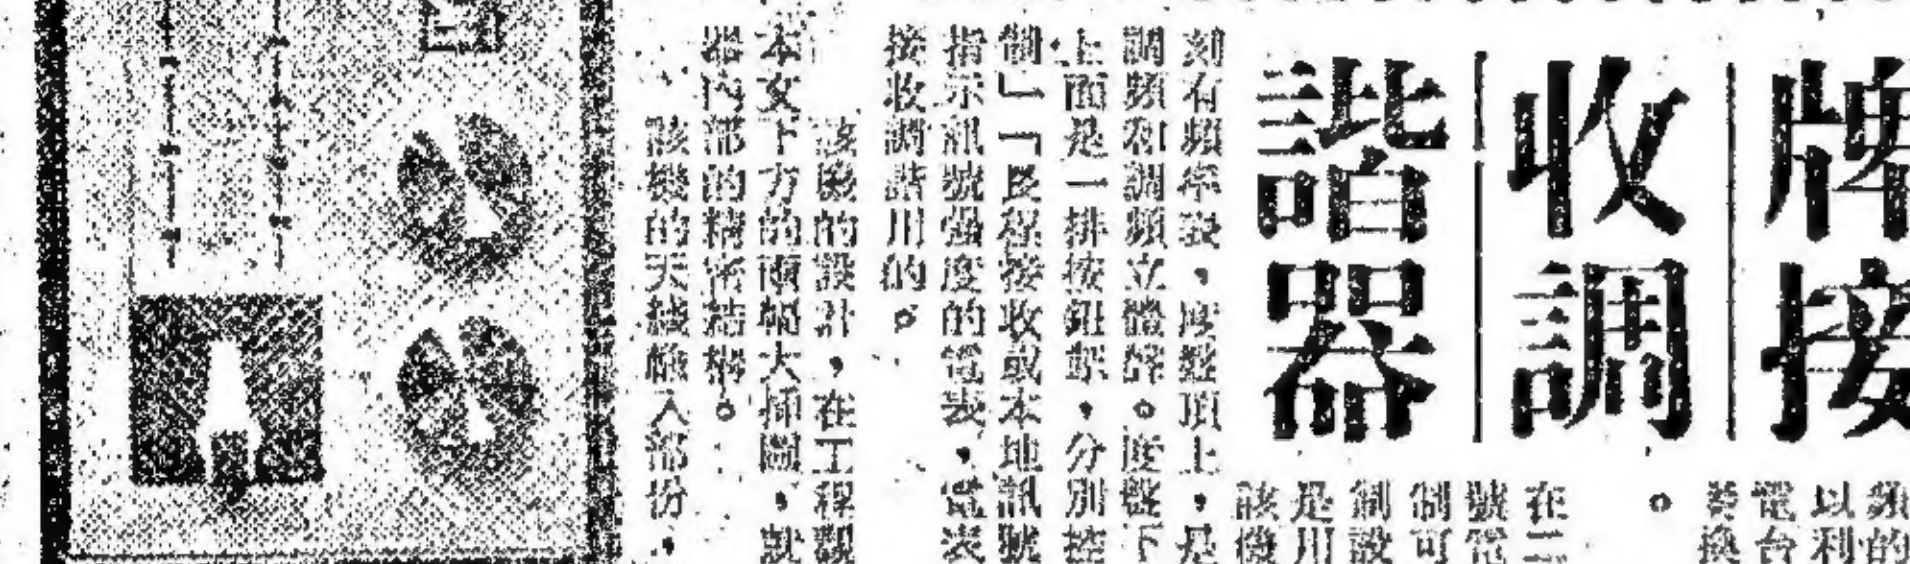 牌接
收調
諧器
頻的
以利
電台
換
在二
號電
制可
制設
是用
該機
刻有頻率表,度盤頂上,是
調頻和調頻立體聲。度盤下
上面是一排按鈕掣,分別控
制」「長程接收或本地訊號
指示訊號強度的電表,電表
接收調諧用的。
該機的設計,在工程觀
本文下方的兩幅大插圖,就
器內部的精密結構。
該機的天綫輸入部份,